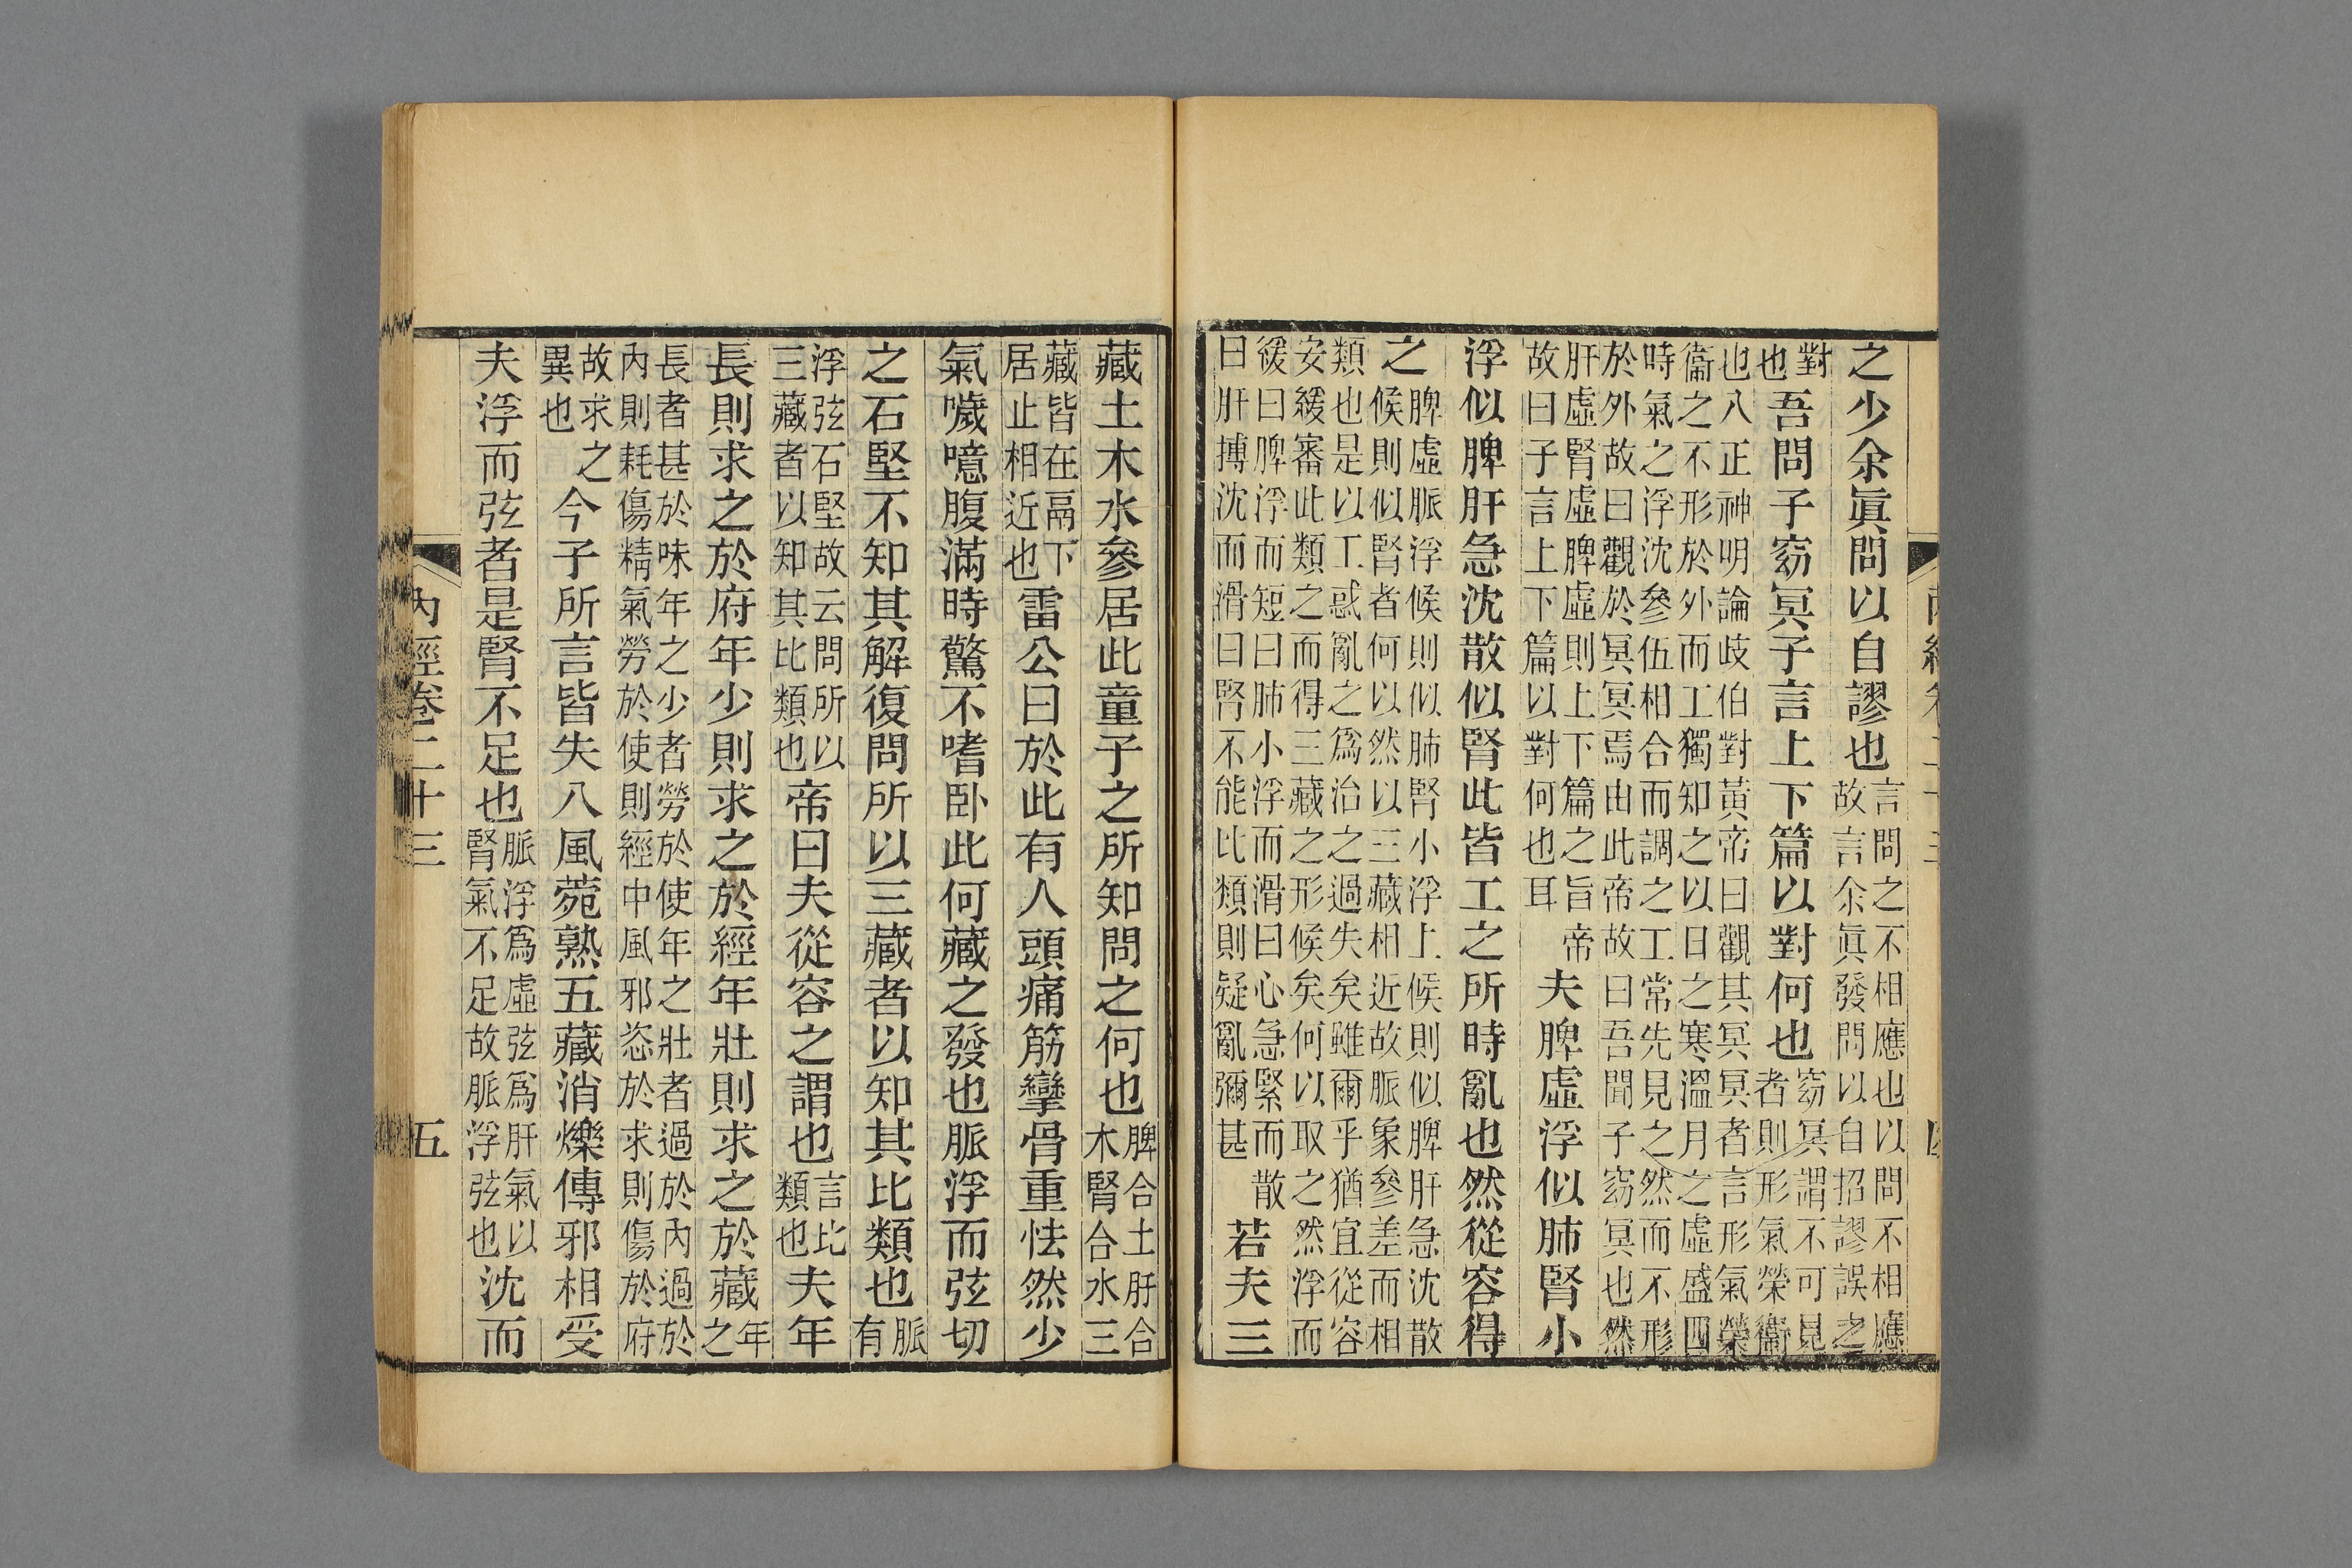 之少余眞問以自謬也言問之不相應也以問不相應
故言余眞發問以自招謬誤之
對也吾問子窈冥子言上下篇以對何也窈冥謂不可見
者則形氣榮衞
也八正神明論歧伯對黃帝曰觀其冥冥者言形氣榮
衞之不形於外而工獨知之以日之寒溫月之虛盛四
時氣之浮沈參伍相合而調之工常先見之然而不形
於外故曰觀於冥冥焉由此帝故曰吾聞子窈冥也然
肝虛腎虛脾虛則上下篇之旨帝
故曰子言上下篇以對何也耳夫脾虛浮似肺腎小
浮似脾肝急沈散似腎此皆工之所時亂也然從容得
之脾虛脈浮候則似肺腎小浮上候則似脾肝急沈散
候則似腎者何以然以三藏相近故脈象參差而相
類也是以工惑亂之爲治之過失矣雖爾乎猶宜從容
安緩審此類之而得三藏之形候矣何以取之然浮而
緩曰脾浮而短曰肺小浮而滑曰心急緊而散
曰肝搏沈而滑曰腎不能比類則疑亂彌甚若夫三
藏土木水參居此童子之所知問之何也脾合土肝合
木腎合水三
藏皆在鬲下
居止相近也雷公曰於此有人頭痛筋攣骨重怯然少
氣噦噫腹滿時驚不嗜卧此何藏之發也脈浮而弦切
之石堅不知其解復問所以三藏者以知其比類也脈
有
浮弦石堅故云問所以
三藏者以知其比類也帝曰夫從容之謂也言比
類也夫年
長則求之於府年少則求之於經年壯則求之於藏年
之
長者甚於味年之少者勞於使年之壯者過於內過於
內則耗傷精氣勞於使則經中風邪恣於求則傷於府
故求之
異也今子所言皆失八風菀熟五藏消爍傳邪相受
夫浮而弦者是腎不足也脈浮爲虛弦爲肝氣以
腎氣不足故脈浮弦也沈而
內經卷二十三
五